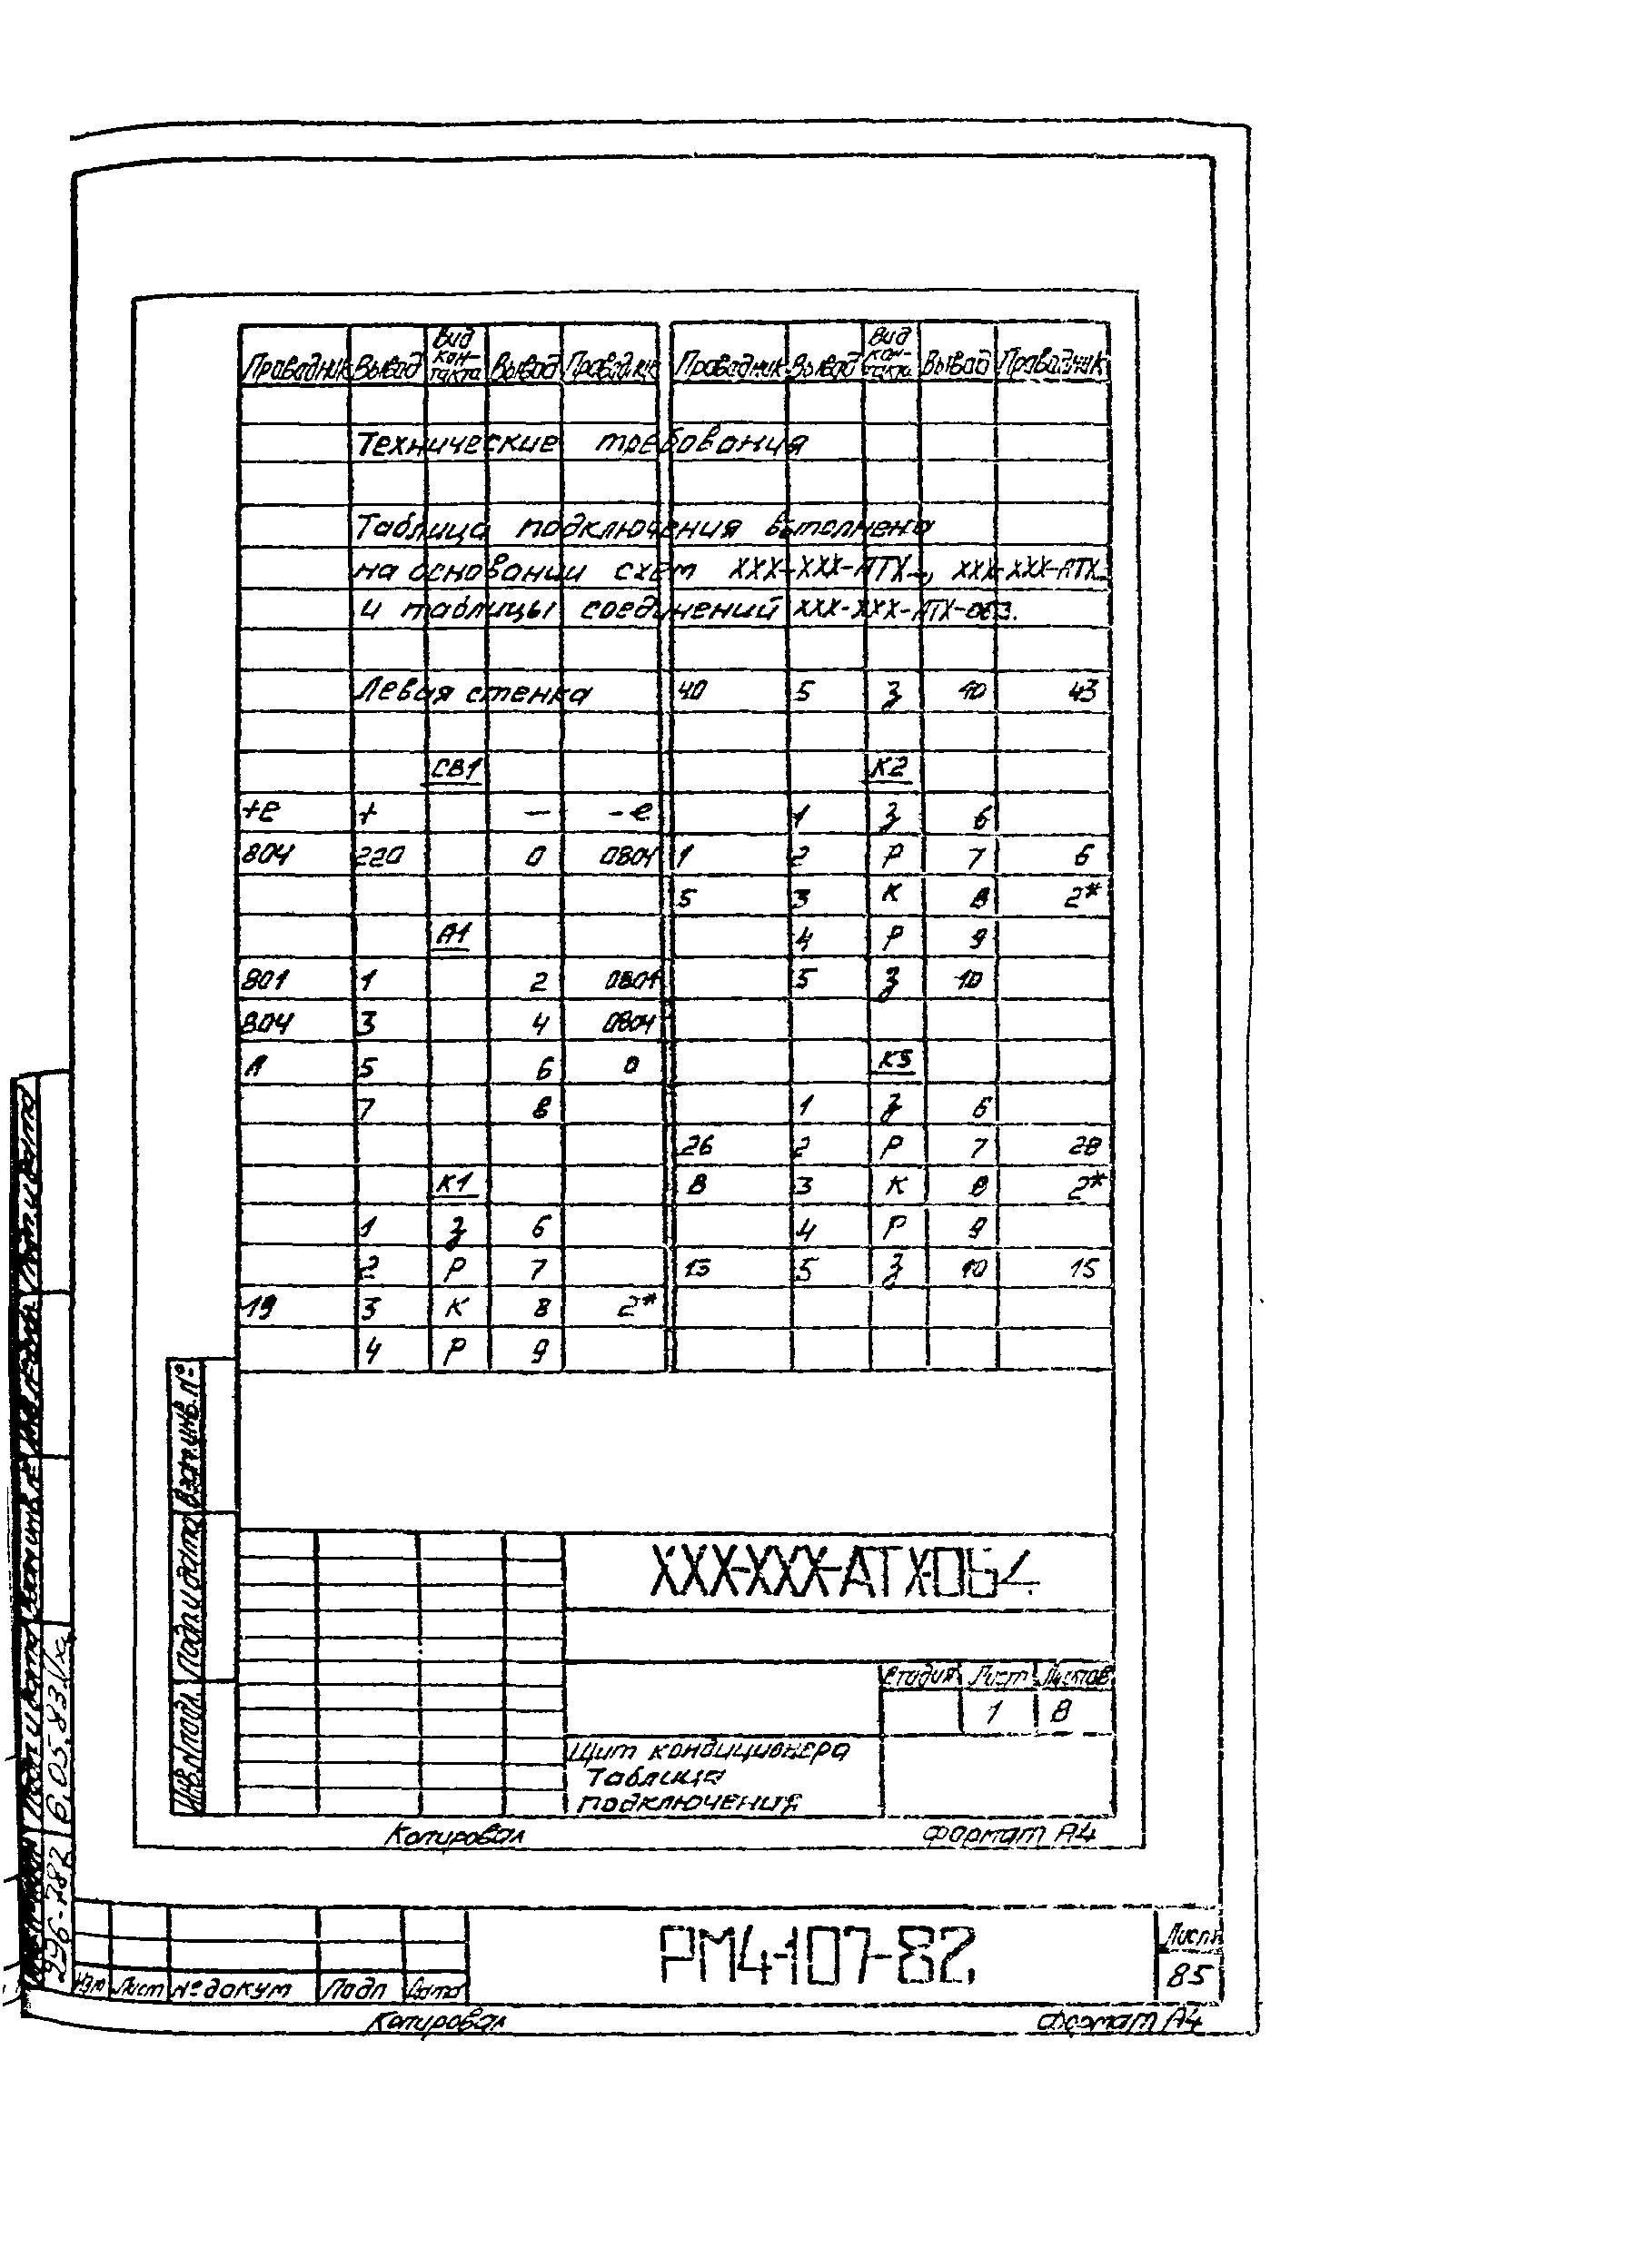 Проводник Вывод Вид кон-такта Вывод Проводник Проводник Вывод Вид кон-такта Вывод Проводник
Технические требования
Таблица подключения выполнена
на основании схем XXX-XXX-АТХ..., XXX-XXX-АТХ...
и таблицы соединений XXX-XXX-АТХ-063.
Левая стенка 40 5 З 10 43
СВ1 К2
+е + — -е 1 З 6
804 220 0 0804 1 2 Р 7 6
5 3 К 8 2*
А1 4 Р 9
801 1 2 0801 5 З 10
804 3 4 0804
А 5 6 0 К3
7 8 1 З 6
26 2 Р 7 28
К1 8 3 К 8 2*
1 З 6 4 Р 9
2 Р 7 13 5 З 10 15
19 3 К 8 2*
4 Р 9
Взам.инв.№
Подп. и дата
Инв.№подл.
XXX-XXX-АТХ-064.
Стадия Лист Листов
1 8
Щит кондиционера
Таблица
подключения
Копировал Формат А4
296-782 6.05.83
РМ4-107-82
Лист
85
Изм Лист № докум Подп Дата
Копировал Формат А4